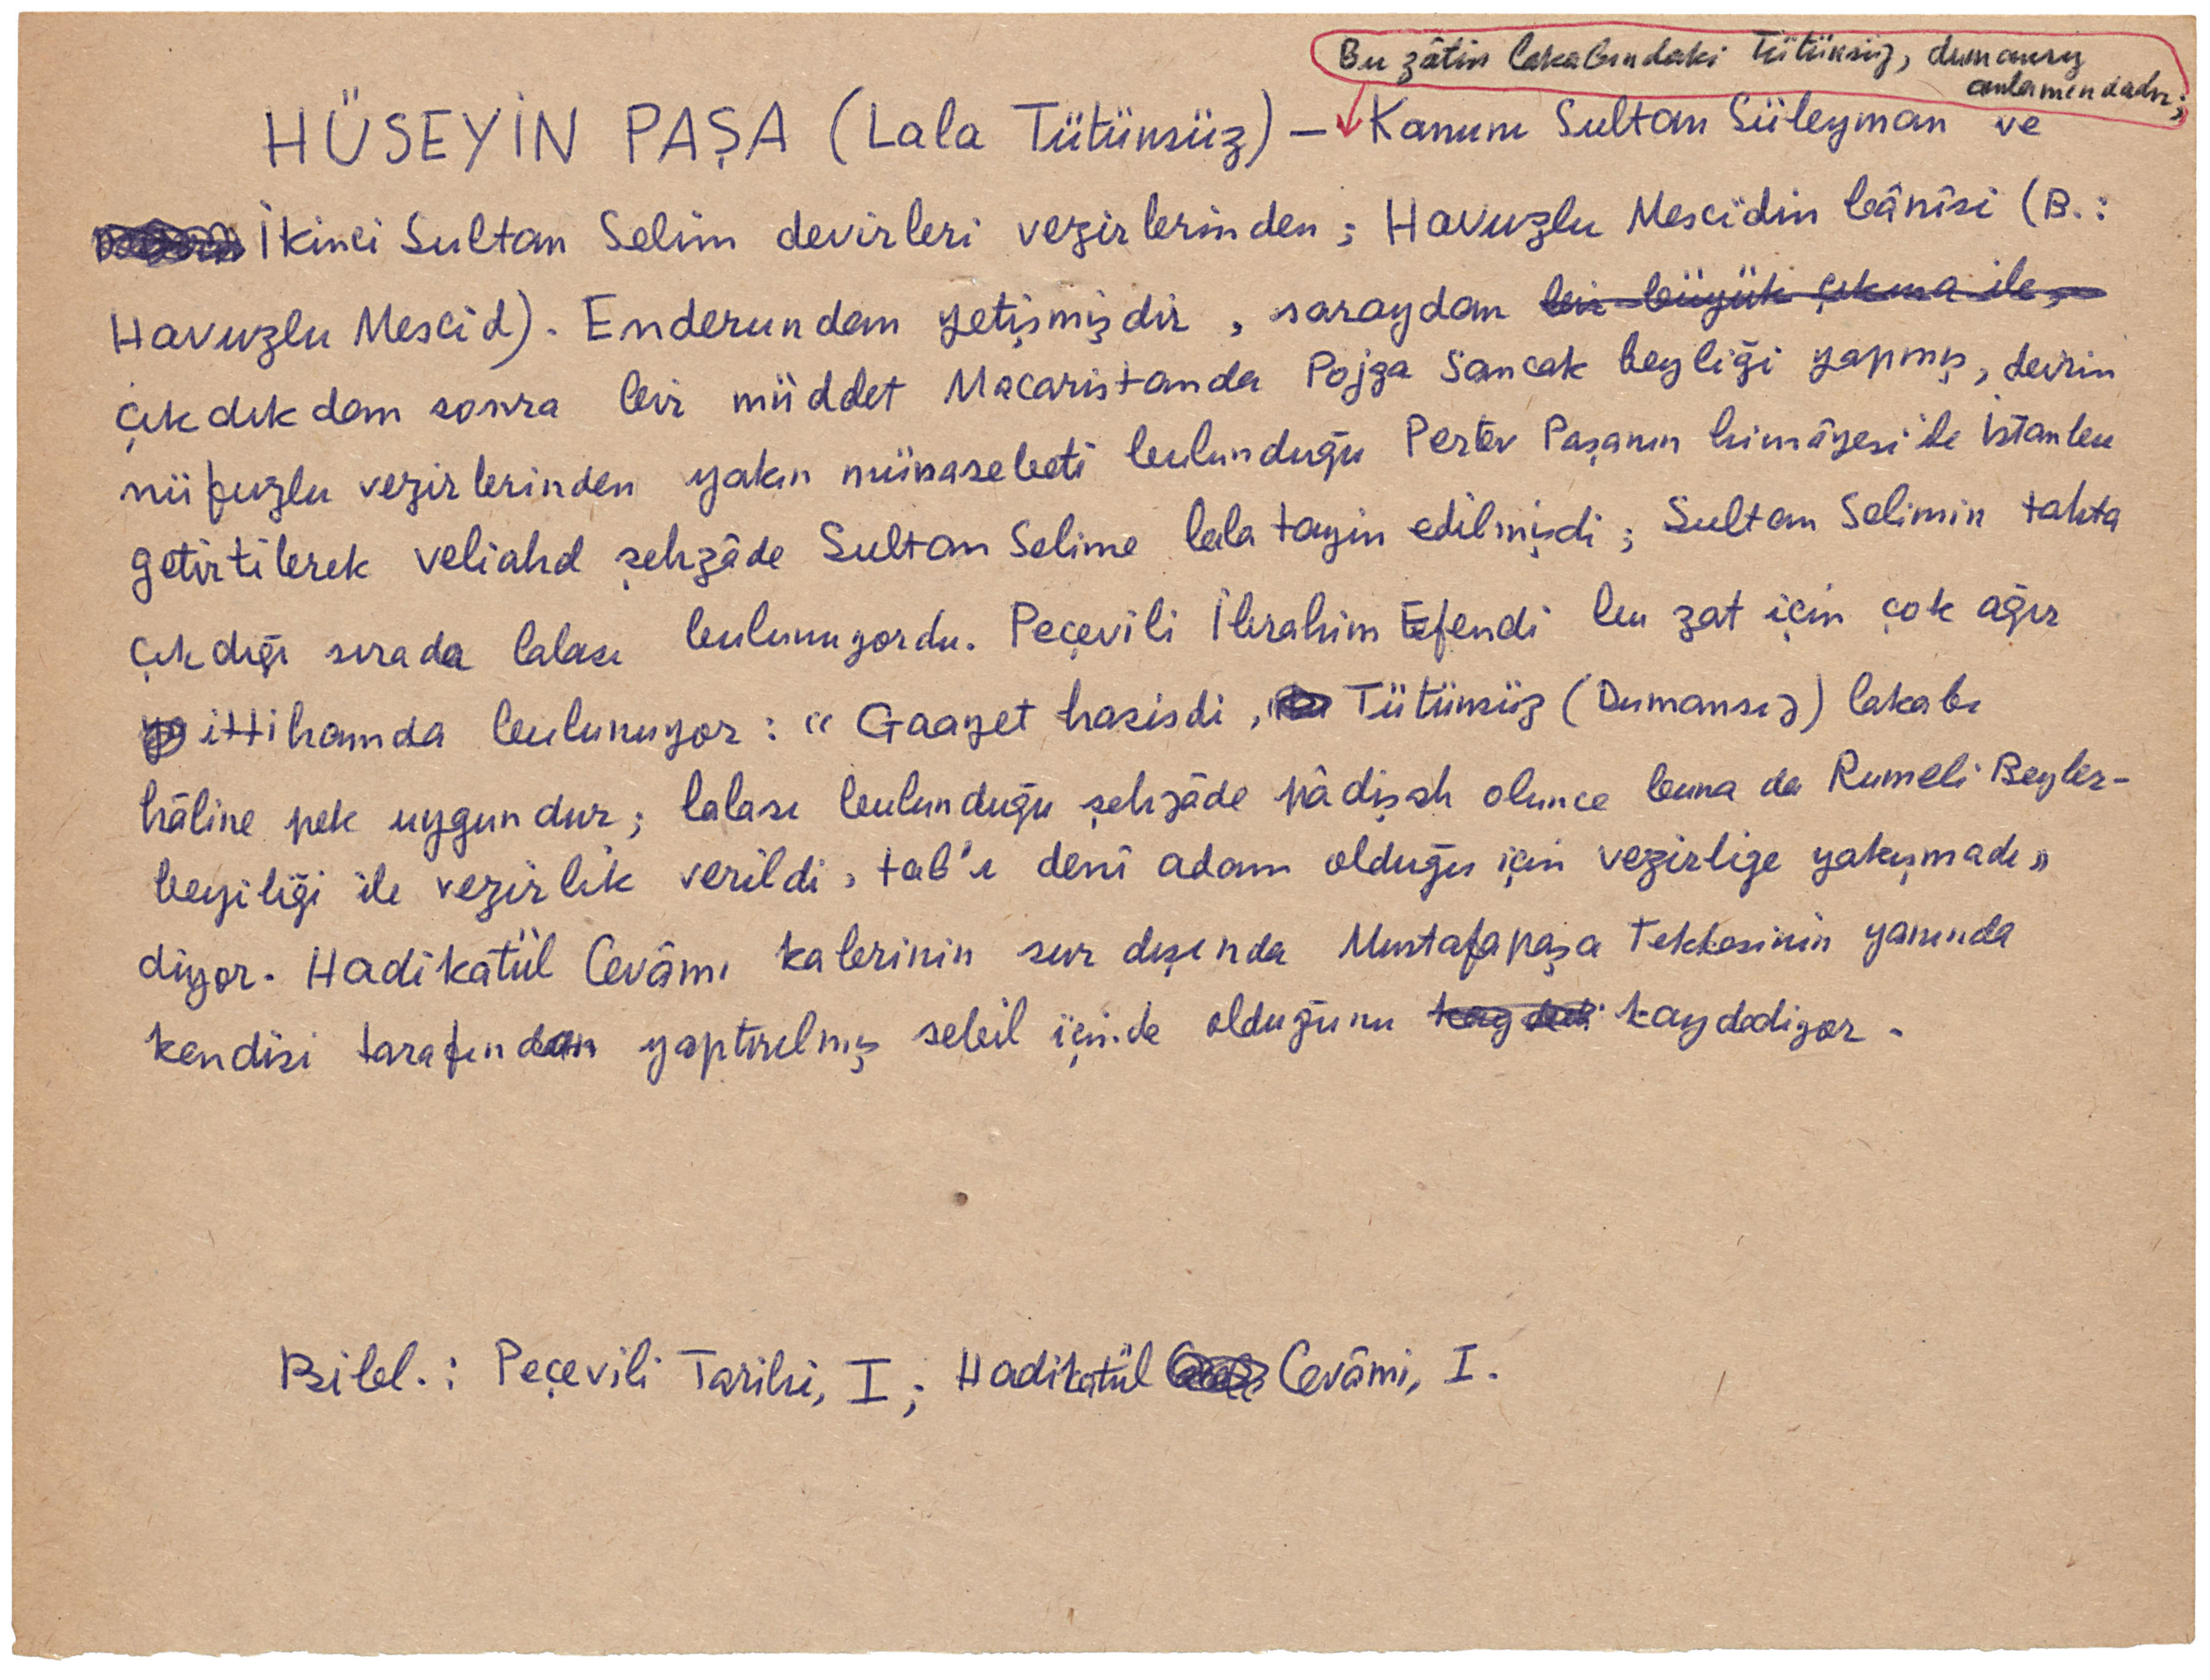 Bu zâtin lakabındaki Tütünsüz, dumansız
anlamındadır;
HÜSEYİN PAŞA (Lala Tütünsüz) — Kanunı Sultan Süleyman ve
İkinci Sultan Selim devirleri vezirlerinden; Havuzlu Mescidin bânîsi (B.:
Havuzlu Mescid). Enderundan yetişmişdir, saraydan bir büyük çıkma ile,
çıkdıkdan sonra bir müddet Macaristanda Pojga Sancak beyliği yapmış, devrin
nüfuzlu vezirlerinden yakın münasebeti bulunduğu Pertev Paşanın himâyesi ile İstanbu
getirtilerek veliahd şehzâde Sultan Selime lala tayin edilmişdi; Sultan Selimin tahta
çıkdığı sırada lalası bulunuyordu. Peçevili İbrahim Efendi bu zat için çok ağır
ittihamda bulunuyor: "Gaayet hasisdi, Tütünsüz (Dumansız) lakabı
hâline pek uygundur; lalası bulunduğu şehzâde pâdişah olunca buna da Rumeli Beyler-
beyiliği ile vezirlik verildi, tab'ı denî adam olduğu için vezirlige yakışmadı"
diyor. Hadikatül Cevâmı kabrinin sur dışında Mustafapaşa Tekkesinin yanında
kendisi tarafından yaptırılmış sebil içinde olduğunu kaydediyor.
Bibl.: Peçevili Tarihi, I; Hadikatül Cevâmi, I.